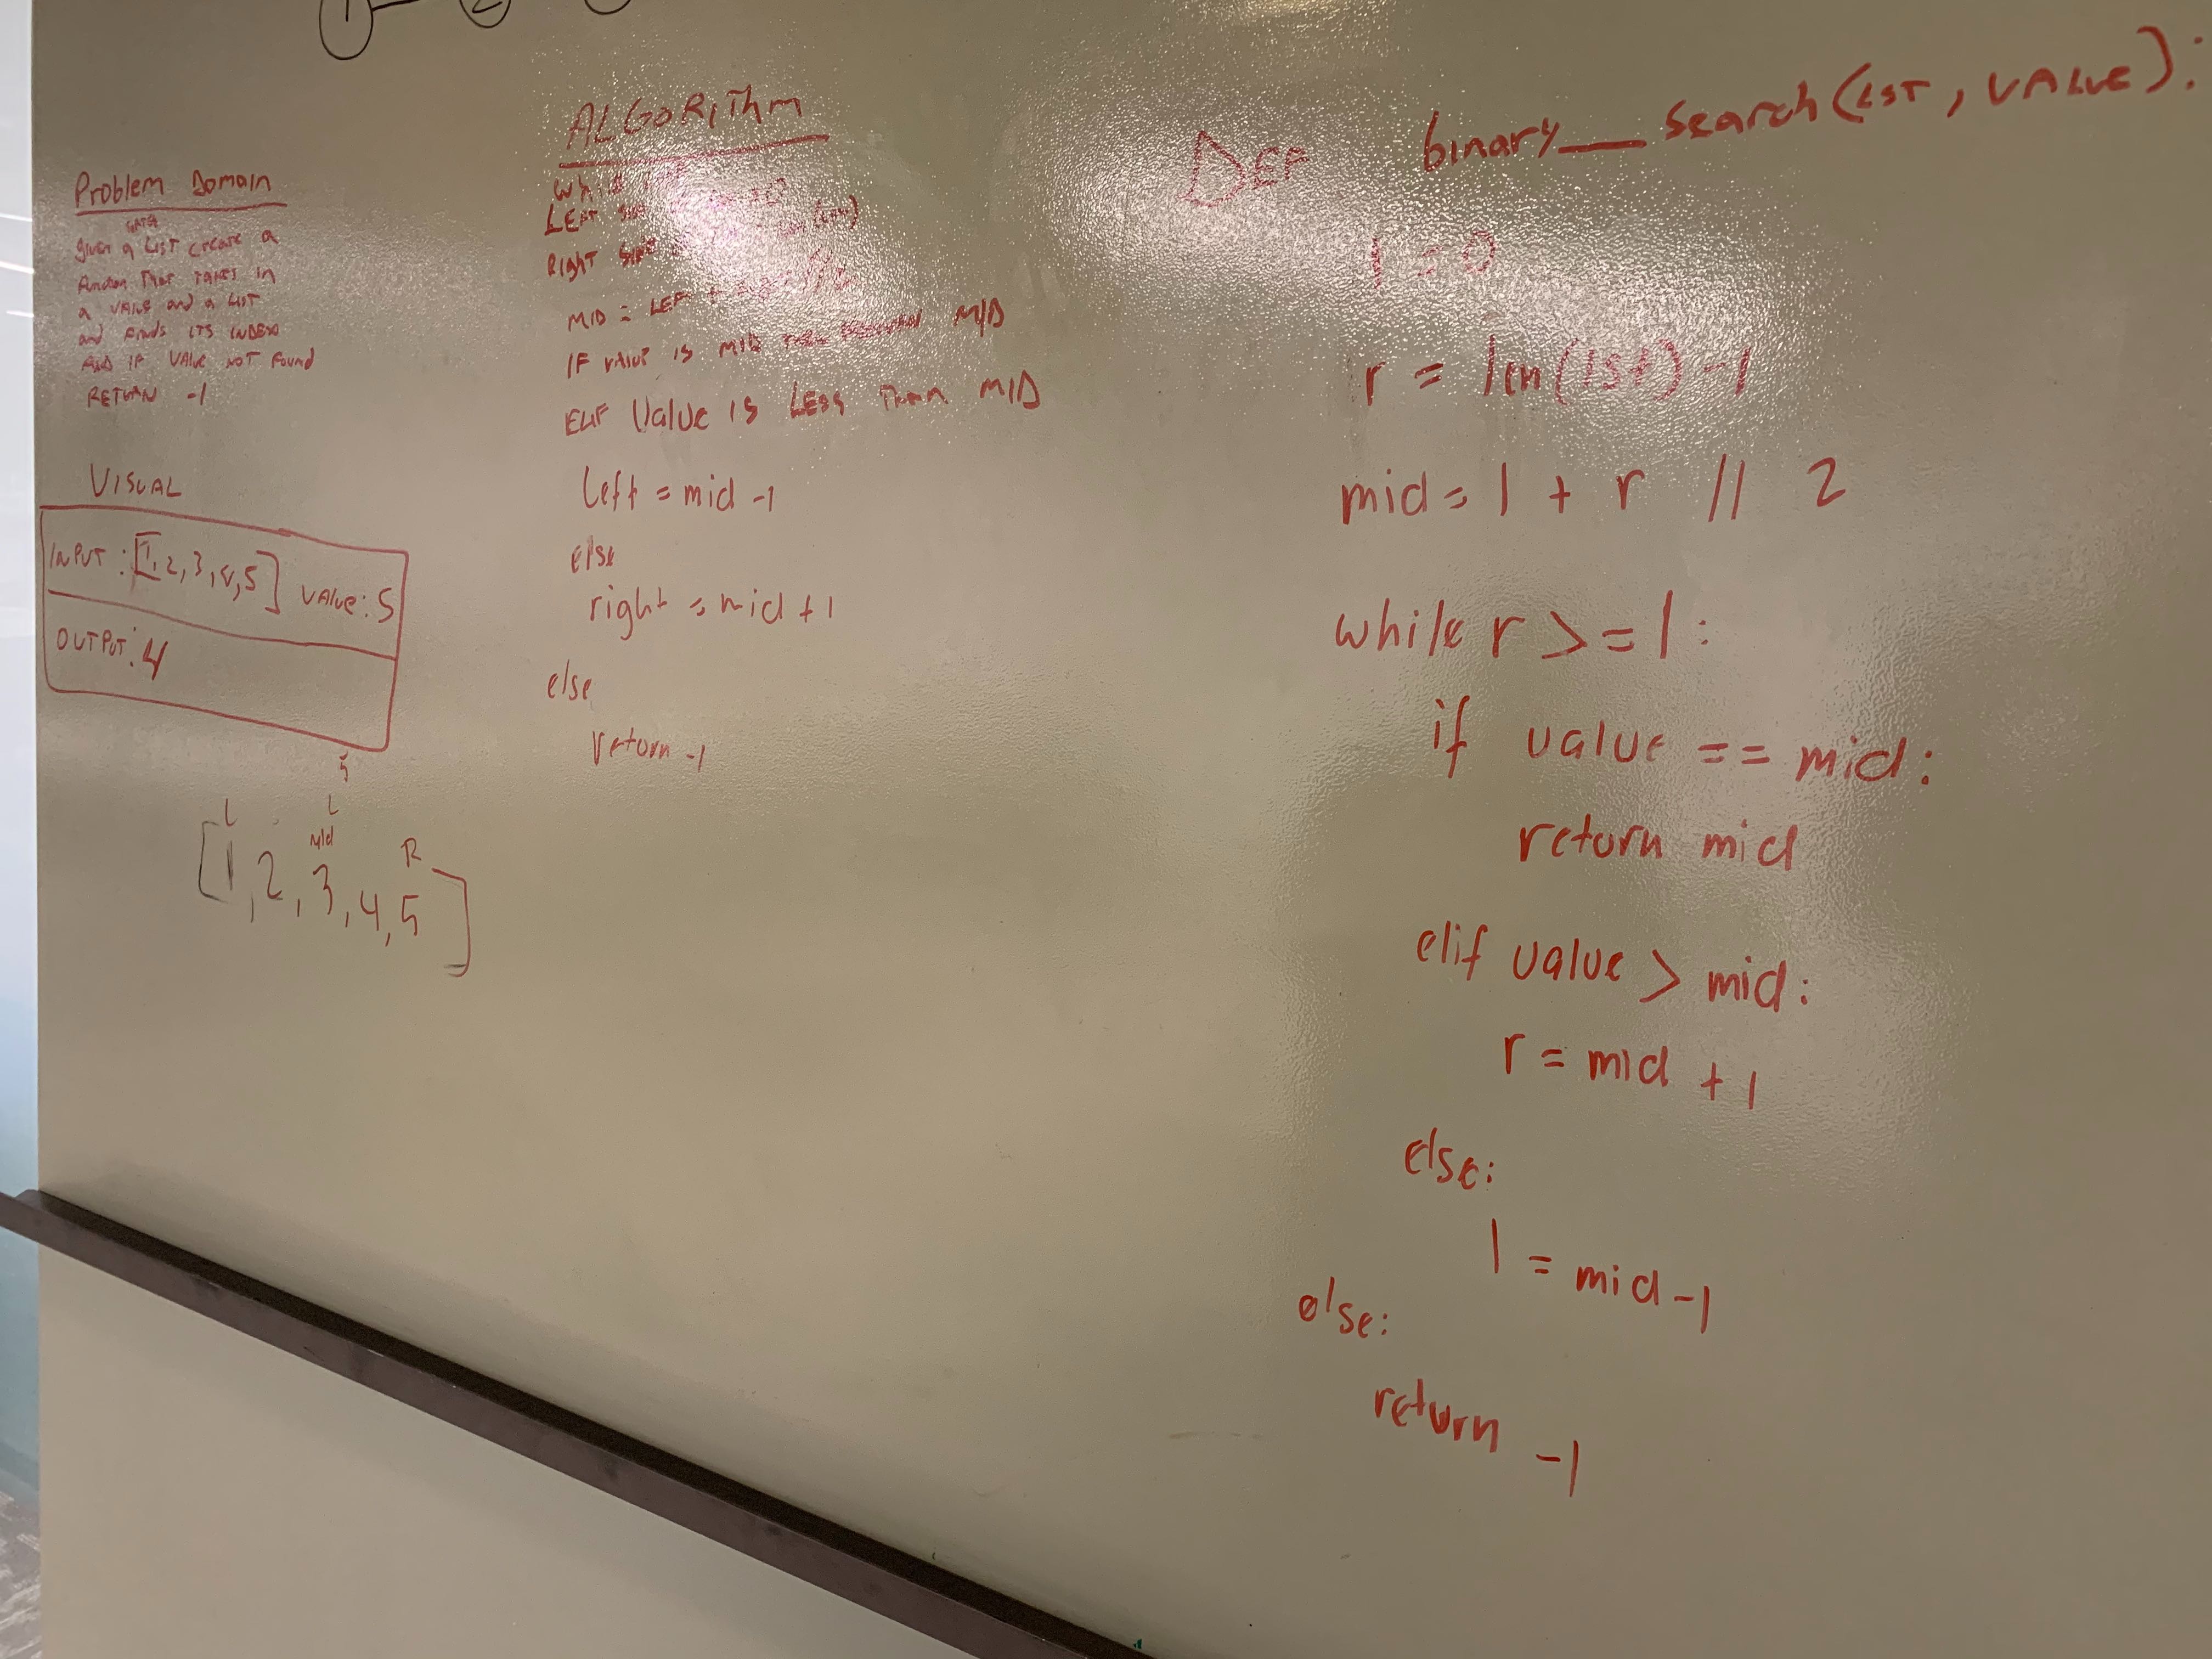 1 2
Problem Domain
given a LIST create a
function that takes in
a value and a list
and finds its index
and if value not found
RETURN -1
VISUAL
INPUT: [1, 2, 3, 4, 5] value: 5
OUTPUT: 4
5
L L
Mid R
[1, 2, 3, 4, 5]
ALGORIThm
LEFT
Right
MID = LEFT +
IF value is MID MID
ELIF Value is LESS Than MID
left = mid -1
else
right = mid + 1
else
return -1
DEF binary_search(LST, VALUE):
l = 0
r = len(lst) -1
mid = l + r // 2
while r >= l:
if value == mid:
return mid
elif value > mid:
r = mid + 1
else:
l = mid -1
else:
return -1